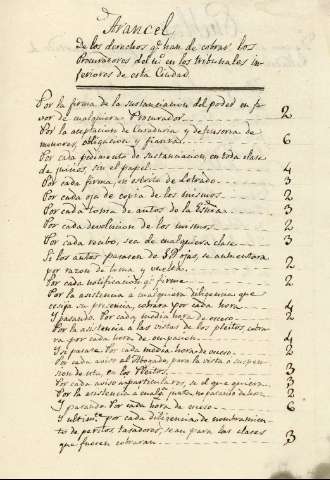 Arancel
De los derechos q.e han de cobrar los
Procuradores del n.o en los tribunales in-
feriores de esta Ciudad
Por la firma de la sustanciacion del poder en fa-
vor de cualquiera Procurador. 2
Por la aceptacion de Curaduria y defensoria de
menores, obligacion y fianza. 6
Por cada pedimento de sustanciacion, en toda clase
de juicios, sin el papel. 4
Por cada firma, en escrito de Letrado. 3
Por cada oja de copia de los mismos 2
Por cada toma de autos de la Escnía. 3
Por cada devolucion de los mismos 2
Por cada recibo, sea de cualquiera clase. 3
Si los autos pasasen de ojas, se aumentara
por razon de toma y vuelta. 2
Por cada notificacion q.e firme 2
Por la asistencia a cualquiera diligencia que
exija su presencia, cobrara por cada hora 4
Y pasando. Por cada media hora de exeso. 2
Por la asistencia a las vistas de los pleitos, cobra-
ra por cada hora de ocupacion. 4
Y si pasase. Por cada media hora de exeso. 2
Por cada aviso al Abogado, para la vista o suspen-
sion de esta, en los Pleitos. 3
Por cada aviso a particulares, se el que quiera. 3
Por la asistencia a cualq.a junta no pasando de hora 2
Y pasando. Por cada hora de exeso. 6
Y ultim.te por cada diligencia de nombramien-
to de peritos tasadores, sean para las clases
que fuesen cobraran 3